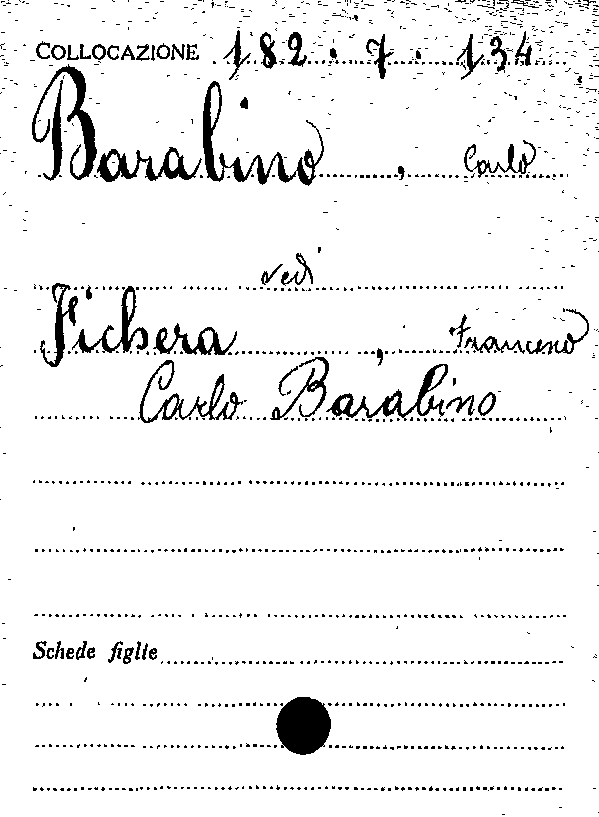 COLLOCAZIONE 182.7.134
Barabino, Carlo
vedi
Fichera, Francesco
Carlo Barabino
Schede figlie